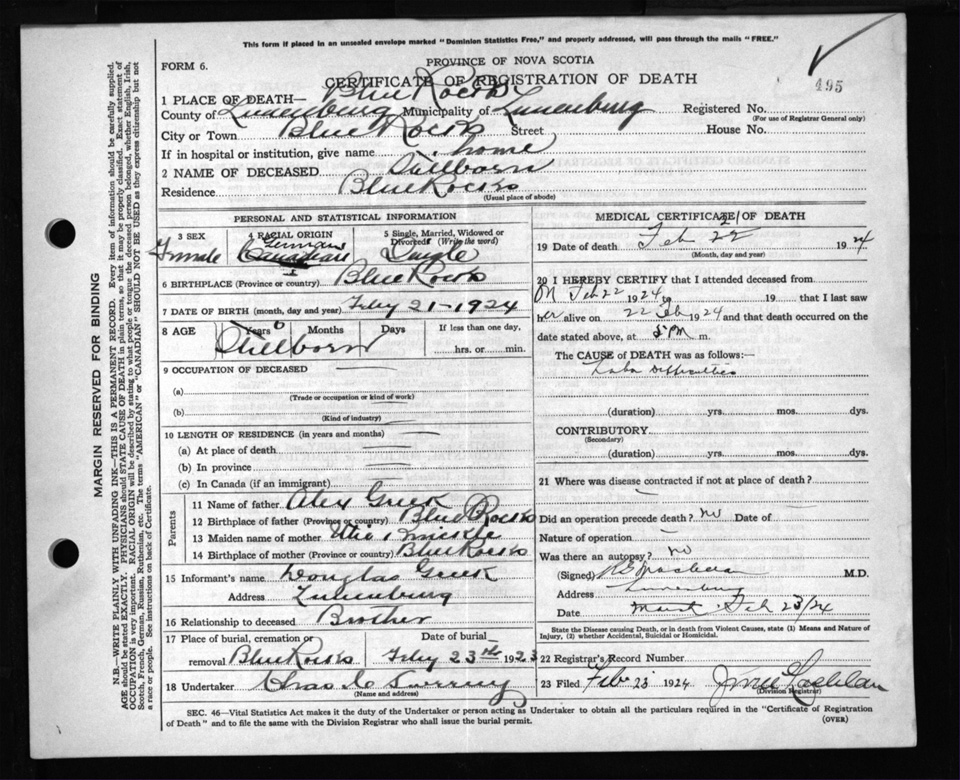 This form if placed in an unsealed envelope marked "Dominion Statistics Free," and properly addressed, will pass through the mails "FREE."
FORM 6.
PROVINCE OF NOVA SCOTIA
CERTIFICATE OF REGISTRATION OF DEATH
495
1 PLACE OF DEATH— Blue Rocks
County of Lunenburg Municipality of Lunenburg Registered No.
(For use of Registrar General only)
City or Town Blue Rocks Street House No.
If in hospital or institution, give name home
2 NAME OF DECEASED Stillborn
Residence Blue Rocks
(Usual place of abode)
PERSONAL AND STATISTICAL INFORMATION
3 SEX Female
4 RACIAL ORIGIN German Canadian
5 Single, Married, Widowed or Divorced (Write the word) Single
6 BIRTHPLACE (Province or country) Blue Rocks
7 DATE OF BIRTH (month, day and year) Feby 21-1924
8 AGE Years Months Days If less than one day,
Stillborn hrs. or min.
9 OCCUPATION OF DECEASED
(a)
(Trade or occupation or kind of work)
(b)
(Kind of industry)
10 LENGTH OF RESIDENCE (in years and months)
(a) At place of death
(b) In province
(c) In Canada (if an immigrant)
Parents
11 Name of father Alex
12 Birthplace of father (Province or country) Blue Rocks
13 Maiden name of mother
14 Birthplace of mother (Province or country) Blue Rocks
15 Informant's name Douglas
Address Lunenburg
16 Relationship to deceased Brother
17 Place of burial, cremation or removal Blue Rocks
Date of burial Feby 23rd 1923
18 Undertaker Chas
(Name and address)
MEDICAL CERTIFICATE OF DEATH
21
19 Date of death Feb 22 1924
(Month, day and year)
20 I HEREBY CERTIFY that I attended deceased from
Feb 22 1924 to 19 that I last saw
her alive on 22 Feb 1924 and that death occurred on the
date stated above, at 5 PM m.
The CAUSE of DEATH was as follows:—
Difficulties
(duration) yrs. mos. dys.
CONTRIBUTORY
(Secondary)
(duration) yrs. mos. dys.
21 Where was disease contracted if not at place of death?
Did an operation precede death? no Date of
Nature of operation
Was there an autopsy? no
(Signed) M.D.
Address Lunenburg
Date Feb 23/24
State the Disease causing Death, or in death from Violent Causes, state (1) Means and Nature of
Injury, (2) whether Accidental, Suicidal or Homicidal.
22 Registrar's Record Number
23 Filed Feb 23 1924
(Division Registrar)
SEC. 46—Vital Statistics Act makes it the duty of the Undertaker or person acting as Undertaker to obtain all the particulars required in the "Certificate of Registration
of Death" and to file the same with the Division Registrar who shall issue the burial permit.
(OVER)
MARGIN RESERVED FOR BINDING
N.B.—WRITE PLAINLY WITH UNFADING INK—THIS IS A PERMANENT RECORD. Every item of information should be carefully supplied.
AGE should be stated EXACTLY. PHYSICIANS should STATE CAUSE OF DEATH in plain terms, so that it may be properly classified. Exact statement of
OCCUPATION is very important. RACIAL ORIGIN will be described by stating to what people or tongue the deceased person belonged, whether English, Irish,
Scotch, French, German, Russian, Ruthenian, etc. The terms "AMERICAN" or "CANADIAN" SHOULD NOT BE USED as they express citizenship but not
a race or people. See instructions on back of Certificate.